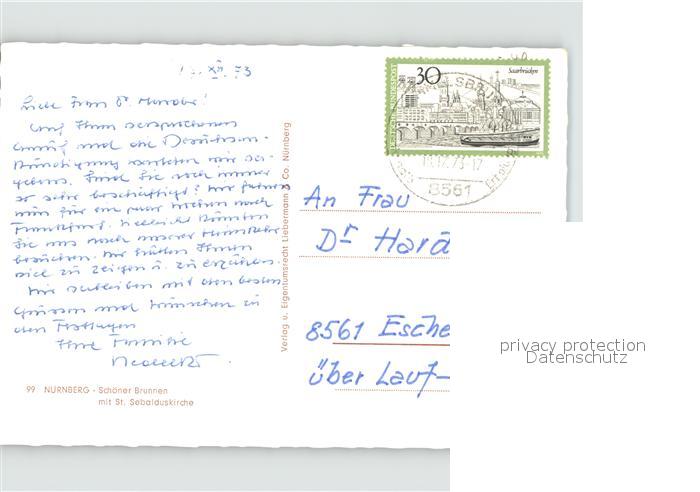 XII. 73
Liebe Frau Dr.
Auf Ihren versprochenen
Anruf und die Besuchs-
ankündigung warteten wir ver-
gebens. Sind Sie noch immer
so sehr beschäftigt? Wir fahren
nun für ein paar Wochen nach
Frankfurt. Vielleicht könnten
Sie uns nach unserer Heimkehr
besuchen. Wir hätten Ihnen
viel zu zeigen u. zu erzählen.
Wir verbleiben mit den besten
Grüssen und Wünschen zu
den Festtagen
Ihre Familie
99 NÜRNBERG - Schöner Brunnen
mit St. Sebalduskirche
Verlag u. Eigentumsrecht Liebermann & Co. Nürnberg
30 Saarbrücken
DEUTSCHE BUNDESPOST
12.73-17
8561
An Frau
Dr Hara
8561 Esche
über Lauf-
privacy protection
Datenschutz